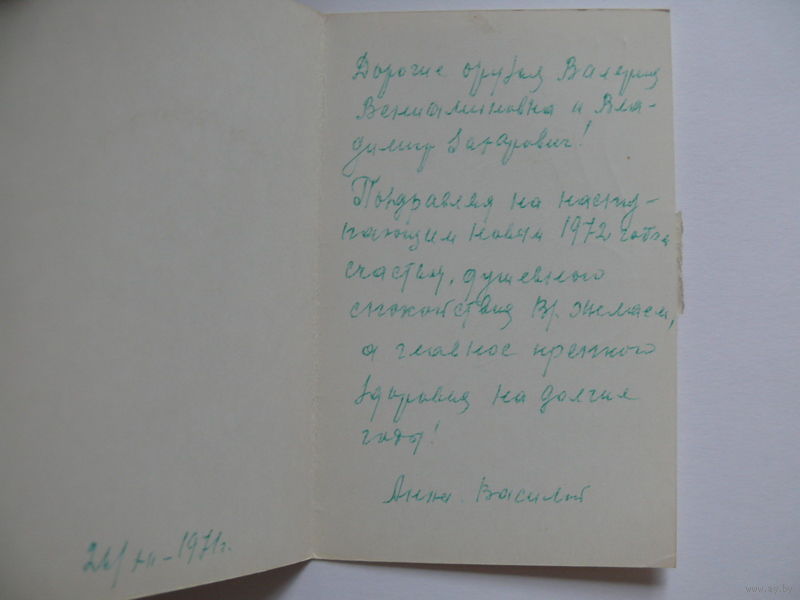 Дорогие друзья Валерия
Вениаминовна и Вла-
димир Захарович!
Поздравляя на насту-
пающим новым 1972 годом
счастья, душевного
спокойствия Вр. желаем,
а главное крепкого
здоровия на долгие
годы!
Анна. Василь
/XII-1971г.
www.ay.by